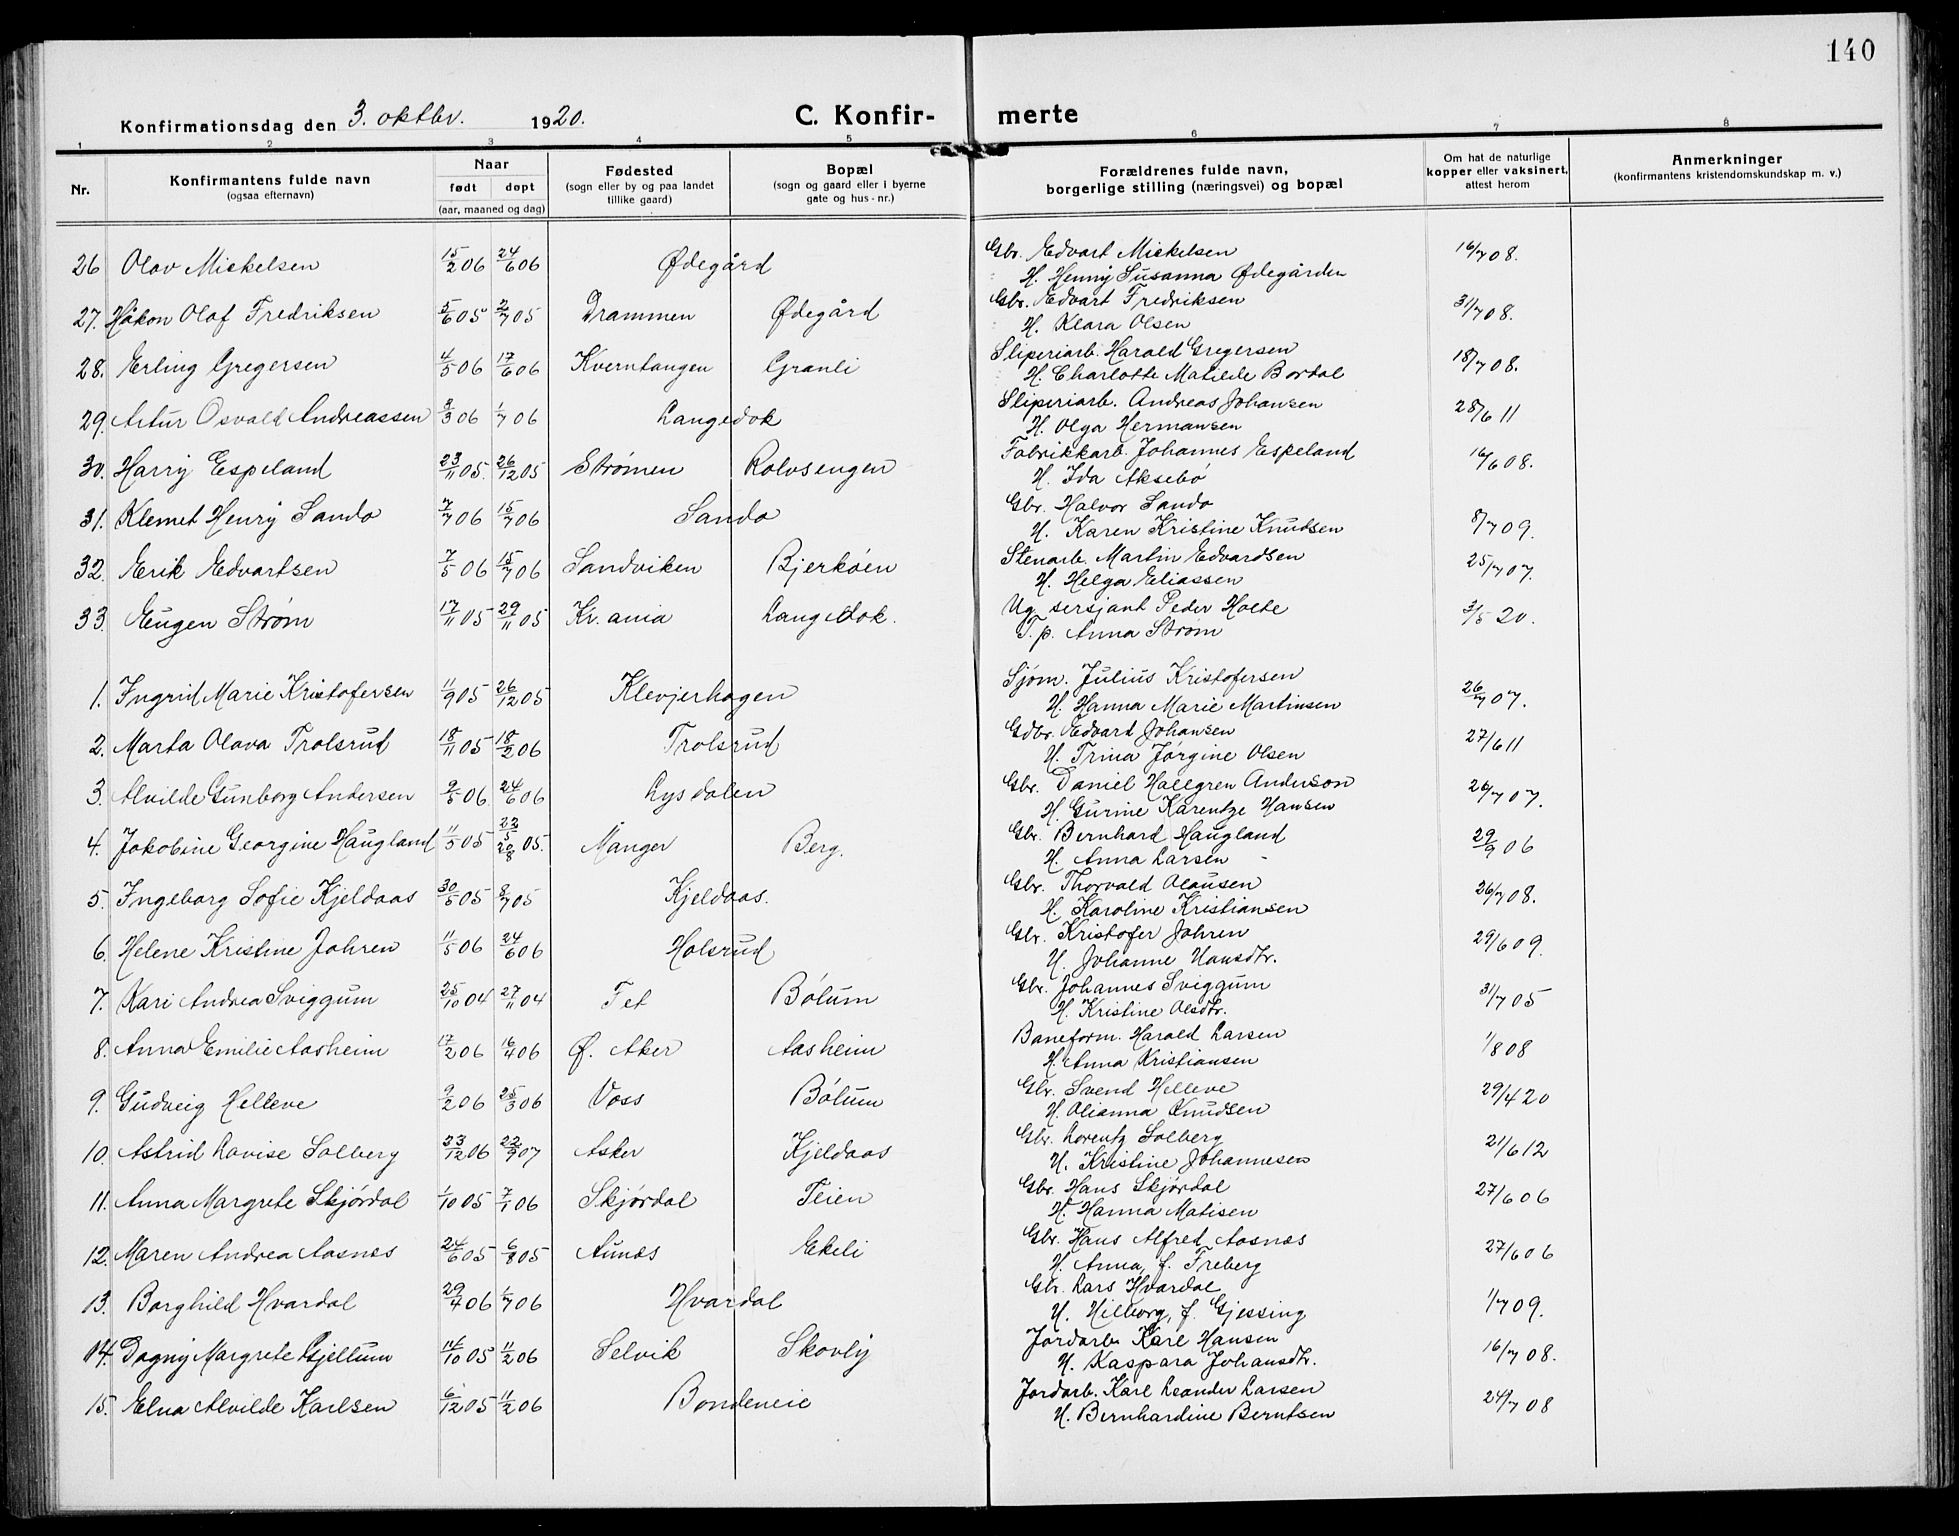 140
Konfirmationsdag den 3. oktbr. 1920.
C. Konfirmerte
1 2 3 4 5 6 7 8
Nr. Konfirmantens fulde navn (ogsaa efternavn) Naar født døpt (aar, maaned og dag) Fødested (sogn eller by og paa landet tillike gaard) Bopæl (sogn og gaard eller i byerne gate og hus-nr.) Forældrenes fulde navn, borgerlige stilling (næringsvei) og bopæl Om hat de naturlige kopper eller vaksinert, attest herom Anmerkninger (konfirmantens kristendomskundskap m. v.)
26 Olav Mickelsen 15/2 06 24/6 06 Ødegård Gbr. Edvart Mickelsen 16/7 08.
H. Henny Susanna Ødegården
27. Håkon Olaf Fredriksen 5/6 05 2/7 05 Drammen Ødegård Gbr. Edvart Fredriksen 31/7 08.
H. Klara Olsen
28. Erling Gregersen 4/5 06 17/6 06 Kverntangen Granli Sliperiarb. Harald Gregersen 18/7 08.
H. Charlotte Matilde Bordal
29. Artur Osvald Andreassen 3/3 06 1/7 06 Langedok Sliperiarb. Andreas Johansen 28/6 11
H. Olga Hermansen
30. Harry Espeland 23/11 05. 26/12 05 Strømen Rolvsengen Fabrikkarb. Johannes Espeland 16/6 08.
H. Ida Aksebö
31. Klemet Henry Sando 7/7 06 15/7 06 Sando Gbr. Halvor Sando
H. Karen Kristine Knudsen 8/7 09.
32. Erik Edvartsen 7/5 06 15/7 06 Sandviken Bjerköen Stenarb. Martin Edvardsen 25/7 07.
H. Helga Eliassen
33. Eugen Strøm 17/11 05 29/11 05 Kr.ania Langedok. Ug. sersjant Peder Holte 3/5 20.
T.p. Anna Strøm
1. Ingrid Marie Kristofersen 11/9 05 26/12 05 Klevjerhagen Sjøm. Julius Kristofersen 26/7 07.
H. Hanna Marie Martinsen
2. Marta Olava Trolsrud 18/11 05 18/2 06 Trolsrud Gdbr. Edvard Johansen 27/6 11
H. Trina Jørgine Olsen
3. Alvilde Gunborg Andersen 9/5 06. 24/6 06 Lysdalen Gbr. Daniel Hallgren Anderson 26/7 07.
H. Gurine Karentze Hansen
4. Jakobine Georgine Haugland 11/5 05 22/5 20/8 05. Manger Berg. Gbr. Bernhard Haugland 29/9 06
H. Anna Larsen
5. Ingeborg Sofie Kjeldaas 30/5 05 8/7 05 Kjeldaas. Gbr. Thorvald Olausen 26/7 08.
H. Karoline Kristiansen
6. Helene Kristine Johren 11/5 06 24/6 06 Holsrud Gbr. Kristofer Johren 29/6 09.
H. Johanne Hansdtr.
7. Kari Andrea Sviggum 25/10 04 27/11 04 Fet Bölum Gbr. Johannes Sviggum 31/7 05
H. Kristine Olsdtr.
8. Anna Emilie Aasheim 17/2 06 16/4 06 Ø. Aker Aasheim Baneform. Harald Larsen 1/8 08
H. Anna Kristiansen
9. Gudveig Helleve 9/2 06 25/3 06 Voss Bölum Gbr. Svend Helleve 29/4 20
H. Olianna Knudsen
10. Astrid Lovise Solberg 23/12 06 22/9 07 Asker Kjeldaas Gbr. Lorentz Solberg 21/6 12
H. Kristine Johannesen
11. Anna Margrete Skjördal 1/10 05 7/1 06 Skjördal Teien Gbr. Hans Skjördal 27/6 06
H. Hanna Matisen
12. Maren Andrea Aasnæs 24/6 05 6/8 05 Aunæs Ekeli Gbr. Hans Alfred Aasnæs 27/6 06
H. Anna, f. Freberg
13. Borghild Hvardal 29/4 06 1/7 06 Hvardal Gbr. Lars Hvardal
H. Hilborg, f. Gjessing 1/7 09.
14. Dagny Margrete Gjellum 16/10 05 11/2 06 Selvik Skovly Jordarb. Karl Hansen
H. Kaspara Johansdtr. 16/7 08.
15. Elna Alvilde Karlsen 6/12 05 11/2 06 Bondeneie Jordarb. Karl Leander Larsen
H. Bernhardine Berntsen 24/7 08